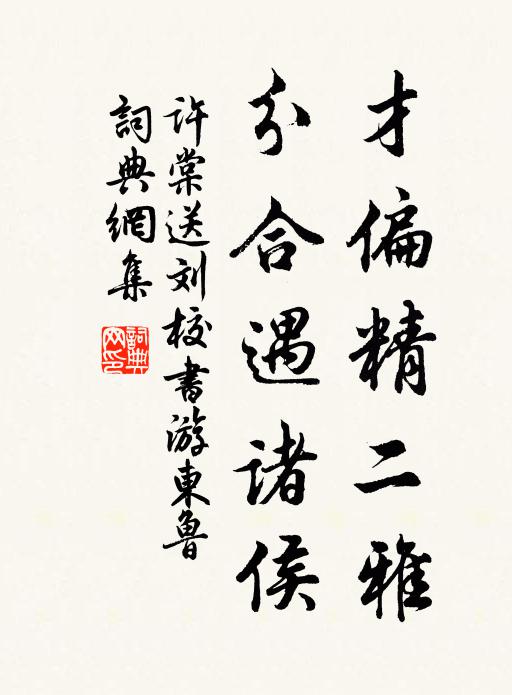 才偏精二雅
分合遇诸侯
许棠送刘校书游東魯
詞典網集
詞典网印